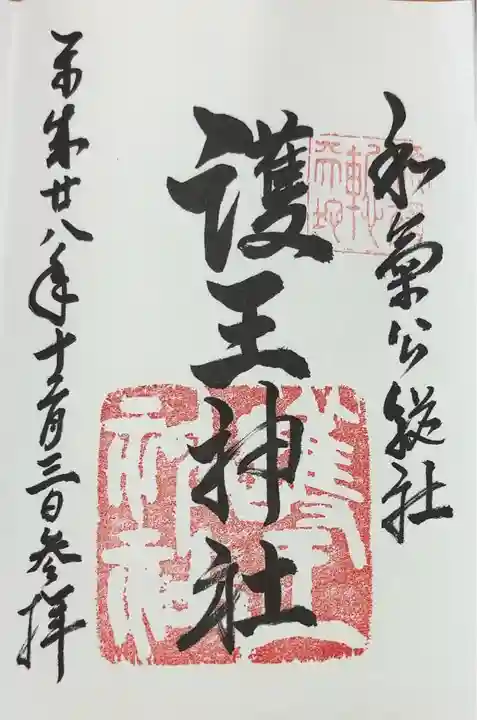 和氣公綜社
護王神社
平成廿八年十二月三日参拝
護王神社